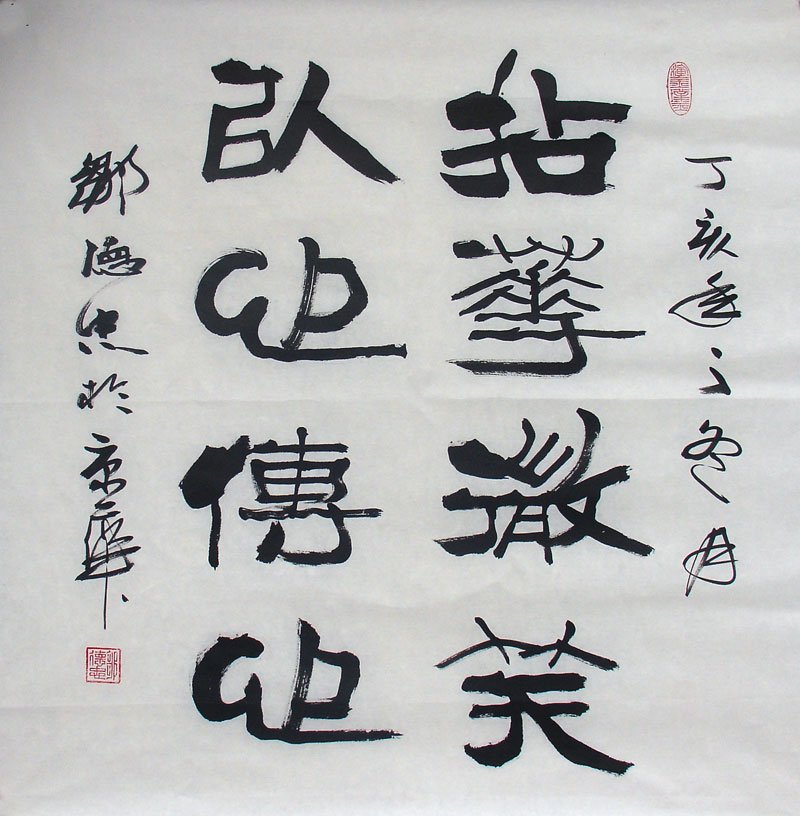 丁亥年之冬月
拈華微笑
以心傳心
鄒德忠於京華
鄒德忠